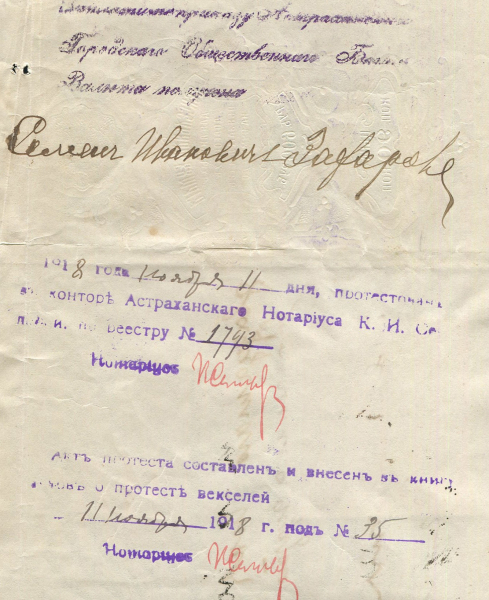 Городского Общественнаго Банка
Валюта получена
Семенъ Ивановичъ Захаровъ
1918 года ноября 11 дня, протестованъ
въ конторѣ Астраханскаго Нотаріуса К. И.
по реестру № 1793
Нотаріусъ
Актъ протеста составленъ и внесенъ въ книгу
актовъ о протестѣ векселей
11 ноября 1918 г. подъ № 25
Нотаріусъ